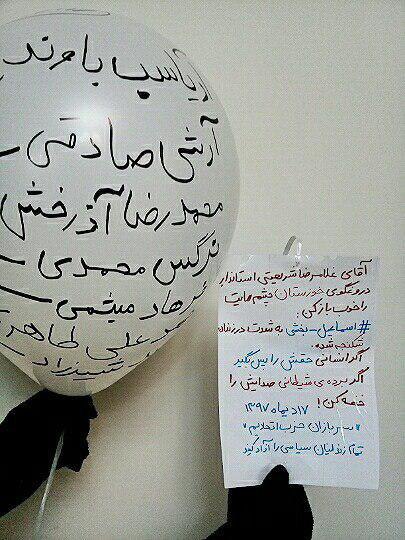 آریاسب باوند
آرش صادقی
محمدرضا آذرخش
نرگس محمدی
فرهاد میثمی
علی طاهر
آقای غلامرضا شریعتی استاندار
دروغگوی خوزستان چشم هایت
را خوب باز کن:
#اسماعیل_بخشی به شدت در زندان
شکنجه شده.
اگر انسانی حقش را پس بگیر
اگر برده ی شیطانی صدایش را
خفه کن!
۱۷ دیماه ۱۳۹۷
سربازان حزب اتحادیم
تمام زندانیان سیاسی را آزاد کنید